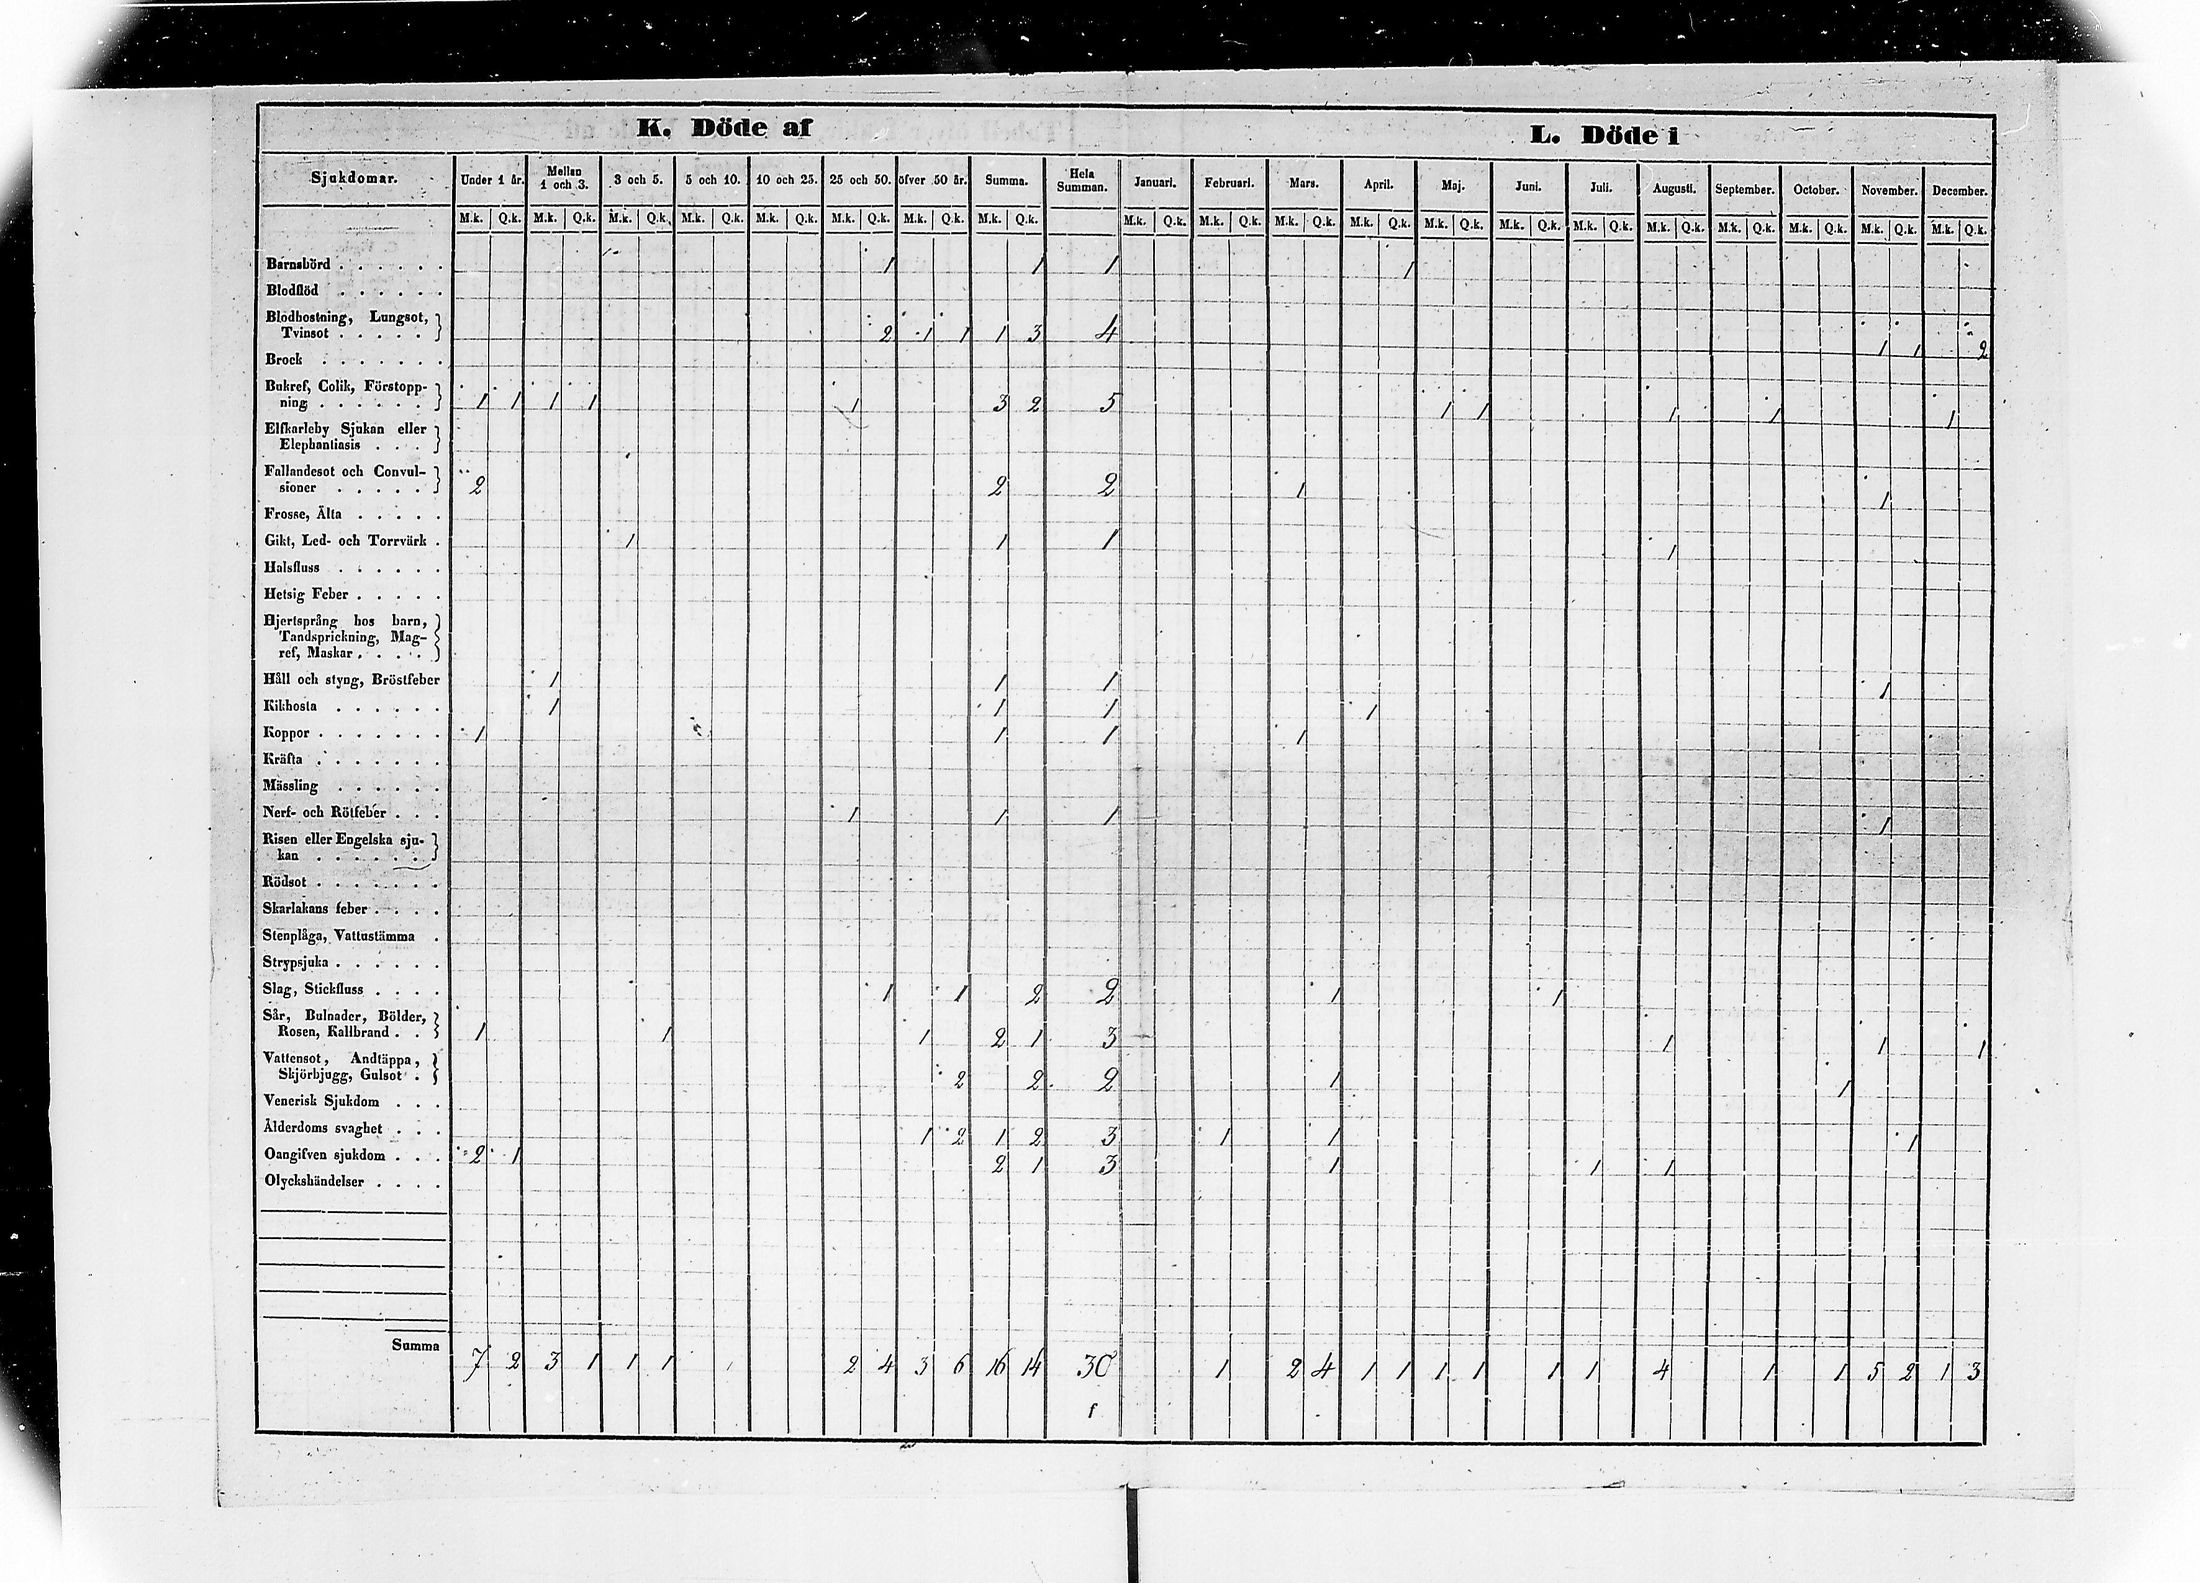 K. Döde af L. Döde i
Sjukdomar. Under 1 år. Mellan 1 och 3. 3 och 5. 5 och 10. 10 och 25. 25 och 50. öfver 50 år. Summa. Hela Summan. Januari. Februari. Mars. April. Maj. Juni. Juli. Augusti. September. October. November. December.
M.k. Q.k. M.k. Q.k. M.k. Q.k. M.k. Q.k. M.k. Q.k. M.k. Q.k. M.k. Q.k. M.k. Q.k. M.k. Q.k. M.k. Q.k. M.k. Q.k. M.k. Q.k. M.k. Q.k. M.k. Q.k. M.k. Q.k. M.k. Q.k. M.k. Q.k. M.k. Q.k. M.k. Q.k. M.k. Q.k.
Barnsbörd . . . . . . 1 1 1 1
Blodflöd . . . . . .
Blodhostning, Lungsot,
Tvinsot . . . . . 2 1 1 1 3 4 1 1 2
Brock . . . . . . .
Bukref, Colik, Förstopp-
ning . . . . . . 1 1 1 1 1 3 2 5 1 1 1 1 1
Elfkarleby Sjukan eller
Elephantiasis . . .
Fallandesot och Convul-
sioner . . . . . 2 2 2 1 1
Frosse, Älta . . . . .
Gikt, Led- och Torrvärk . 1 1 1 1
Halsfluss . . . . . .
Hetsig Feber . . . . .
Hjertsprång hos barn,
Tandsprickning, Mag-
ref, Maskar . . . .
Håll och styng, Bröstfeber 1 1 1 1
Kikhosta . . . . . . 1 1 1 1
Koppor . . . . . . . 1 1 1 1
Kräfta . . . . . . .
Mässling . . . . . .
Nerf- och Rötfeber . . . 1 1 1 1
Risen eller Engelska sju-
kan . . . . . .
Rödsot . . . . . . .
Skarlakans feber . . . .
Stenplåga, Vattustämma .
Strypsjuka . . . . . .
Slag, Stickfluss . . . . 1 1 2 2 1 1
Sår, Bulnader, Bölder,
Rosen, Kallbrand . . 1 1 1 2 1 3 1 1 1
Vattensot, Andtäppa,
Skjörbjugg, Gulsot . 2 2 2 1 1
Venerisk Sjukdom . . .
Ålderdoms svaghet . . . 1 2 1 2 3 1 1 1
Oangifven sjukdom . . . 2 1 2 1 3 1 1 1
Olyckshändelser . . . .
Summa 7 2 3 1 1 1 2 4 3 6 16 14 30 1 2 4 1 1 1 1 1 1 4 1 1 5 2 1 3